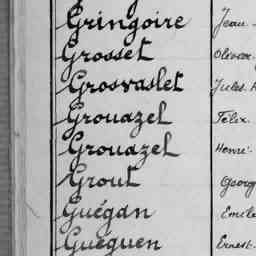 Gringoire Jean
Grosset Olivier
Grosvaslet Jules
Grouazel Félix
Grouazel Henri
Grout Georg
Guégan Emile
Guéguen Ernest